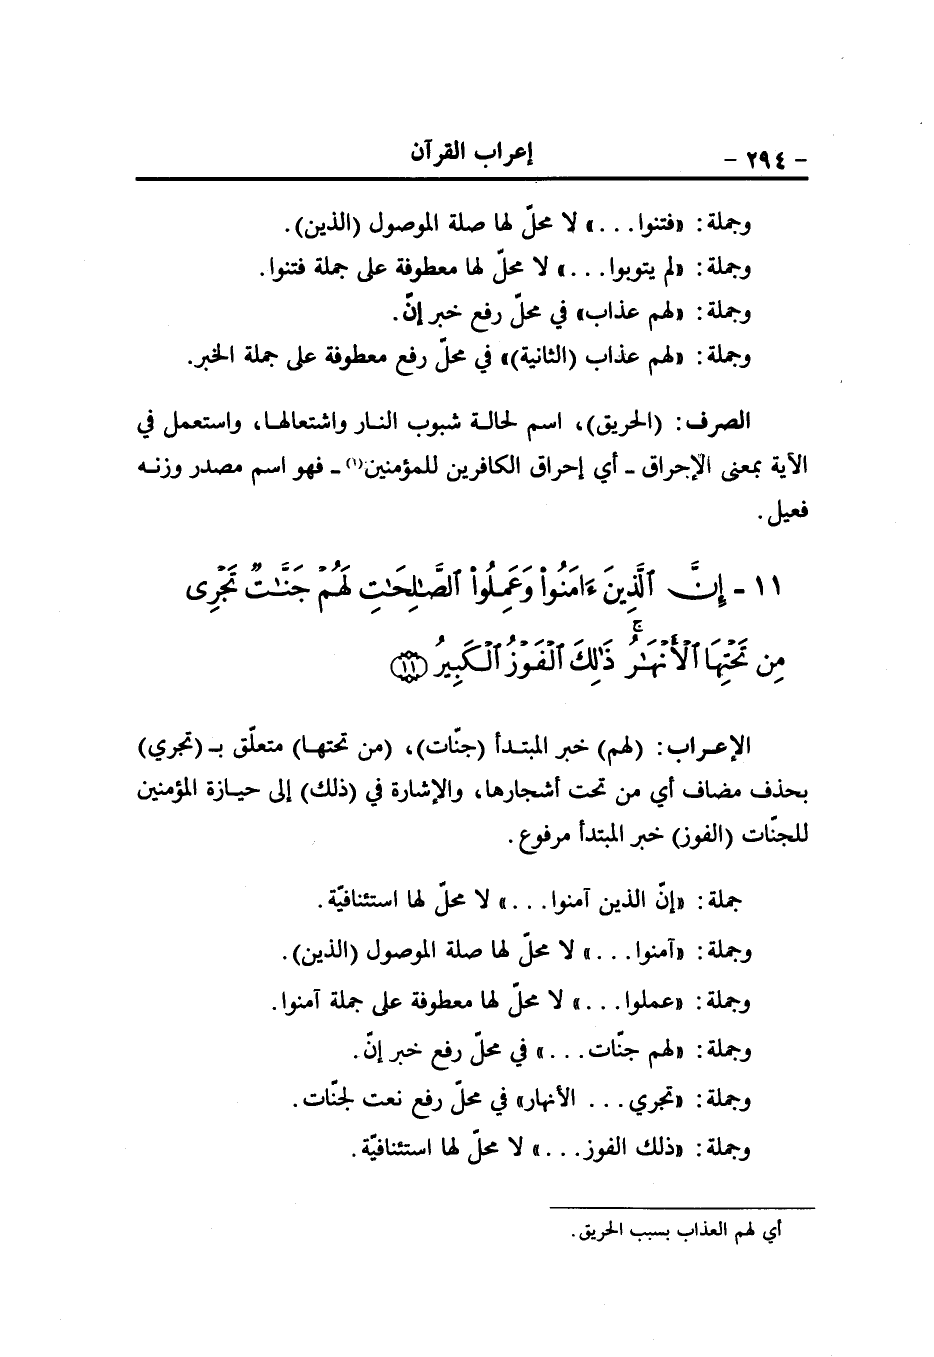 - ٢٩٤ -
إعراب القرآن
وجملة: «فتنوا...» لا محلّ لها صلة الموصول (الذين).
وجملة: «لم يتوبوا...» لا محلّ لها معطوفة على جملة فتنوا.
وجملة: «لهم عذاب» في محلّ رفع خبر إنّ.
وجملة: «لهم عذاب (الثانية)» في محلّ رفع معطوفة على جملة الخبر.
الصرف: (الحريق)، اسم لحالة شبوب النار واشتعالها، واستعمل في
الآية بمعنى الإحراق - أي إحراق الكافرين للمؤمنين(١) - فهو اسم مصدر وزنه
فعيل.
١١ - إِنَّ ٱلَّذِينَ ءَامَنُوا۟ وَعَمِلُوا۟ ٱلصَّـٰلِحَـٰتِ لَهُمْ جَنَّـٰتٌ تَجْرِى
مِن تَحْتِهَا ٱلْأَنْهَـٰرُ ۚ ذَٰلِكَ ٱلْفَوْزُ ٱلْكَبِيرُ ﴿١١﴾
الإعراب: (لهم) خبر المبتدأ (جنّات)، (من تحتها) متعلّق بـ (تجري)
بحذف مضاف أي من تحت أشجارها، والإشارة في (ذلك) إلى حيازة المؤمنين
للجنّات (الفوز) خبر المبتدأ مرفوع.
جملة: «إنّ الذين آمنوا...» لا محلّ لها استئنافيّة.
وجملة: «آمنوا...» لا محلّ لها صلة الموصول (الذين).
وجملة: «عملوا...» لا محلّ لها معطوفة على جملة آمنوا.
وجملة: «لهم جنّات...» في محلّ رفع خبر إنّ.
وجملة: «تجري... الأنهار» في محلّ رفع نعت لجنّات.
وجملة: «ذلك الفوز...» لا محلّ لها استئنافيّة.
أي لهم العذاب بسبب الحريق.